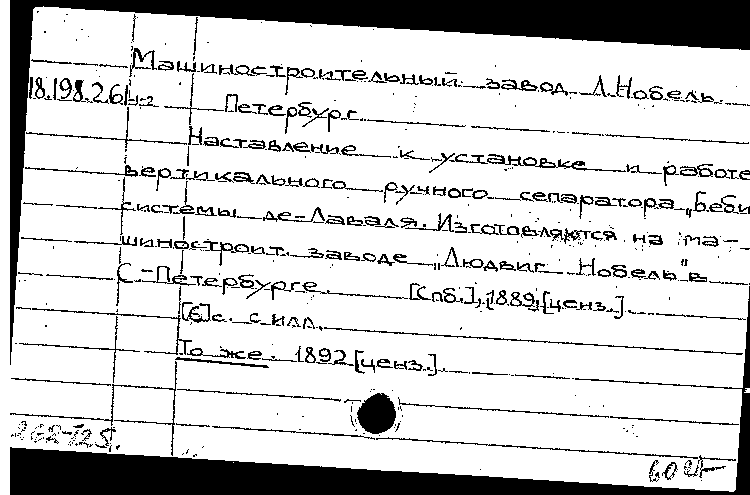 Машиностроительный завод Л.Нобель.
18.198.2.61 1-2 Петербург
Наставление к установке и работе
вертикального ручного сепаратора „Беби
системы де-Лаваля. Изготовляются на ма-
шиностроит. заводе „Людвиг Нобель" в
С.-Петербурге. [Спб.], 1889, [ценз.].
[6]с. с илл.
То же. 1892 [ценз.].
262-725.